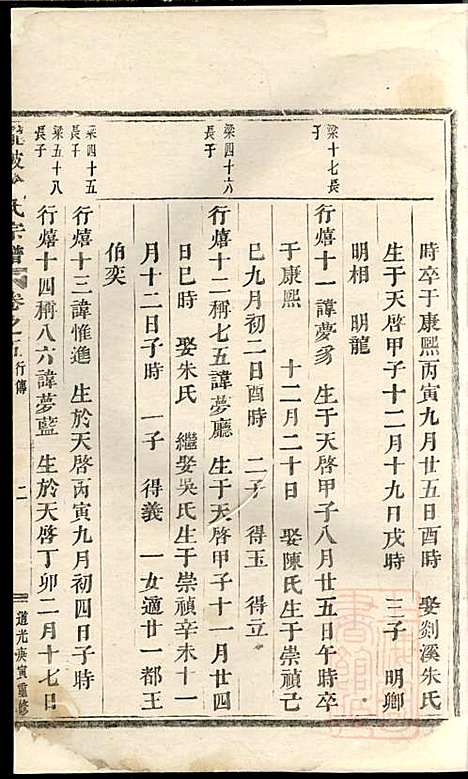 時卒于康熙丙寅九月廿五日酉時 娶剡溪朱氏
生于天啓甲子十二月十九日戌時 三子 明卿
明相 明龍
梁十七長子
行熺十一諱夢 生于天啓甲子八月廿五日午時卒
于康熙 十二月二十日 娶陳氏生于崇禎己
巳九月初二日酉時 二子 得玉 得立
梁四十六長子
行熺十二稱七五諱夢廳 生于天啓甲子十一月廿四
日巳時 娶朱氏 繼娶吳氏生于崇禎辛未十一
月十二日子時 一子 得義 一女適廿一都王
伯奕
梁四十五長子
行熺十三諱惟進 生於天啓丙寅九月初四日子時
梁五十八長子
行熺十四稱八六諱夢藍 生於天啓丁卯二月十七日
氏宗譜 卷之 行傳 二 道光庚寅重修